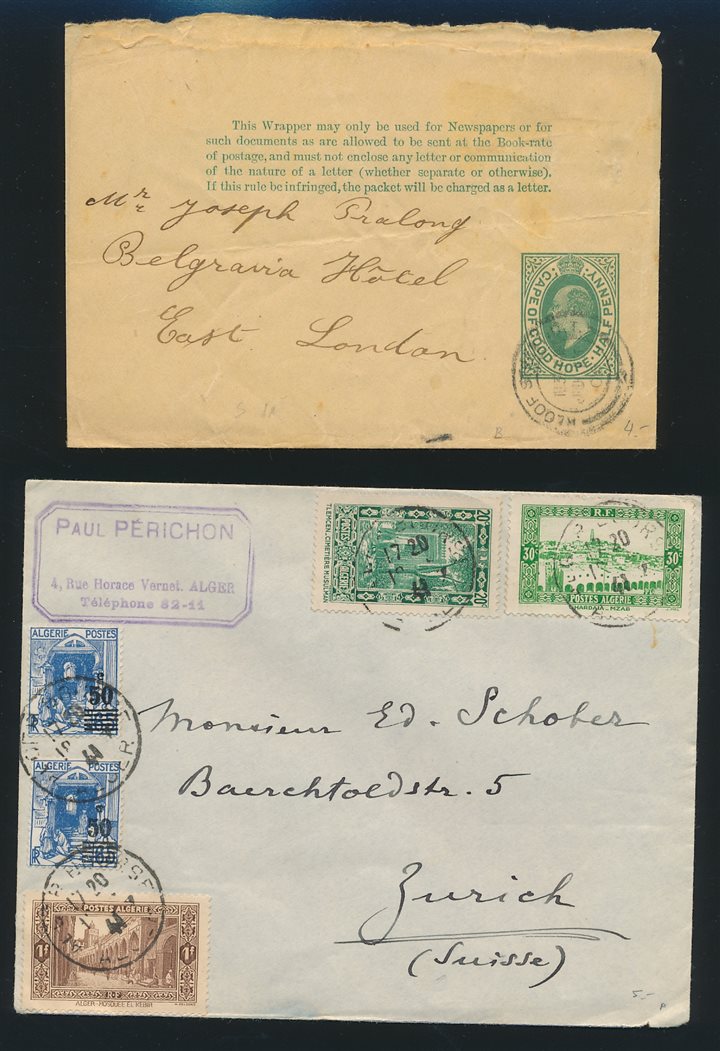 This Wrapper may only be used for Newspapers or for
such documents as are allowed to be sent at the Book-rate
of postage, and must not enclose any letter or communication
of the nature of a letter (whether separate or otherwise).
If this rule be infringed, the packet will be charged as a letter.
Mr Joseph Pralong
Belgravia Hôtel
East London
CAPE OF GOOD HOPE · HALF PENNY ·
KLOOF
B
4.-
PAUL PÉRICHON
4, Rue Horace Vernet. ALGER
Téléphone 82-11
20c
POSTES
TLEMCEN. CIMETIÈRE MUSULMAN
17 20
RF
30c 30c
POSTES ALGÉRIE
GHARDAIA - MZAB
20
41
ALGÉRIE POSTES
50c
ALGÉRIE POSTES
50c
17 20
41
POSTES ALGÉRIE
1F 1F
RF
ALGER - MOSQUÉE EL KEBIR
Monsieur Ed. Schober
Baerchtoldstr. 5
Zurich
(Suisse)
5.-